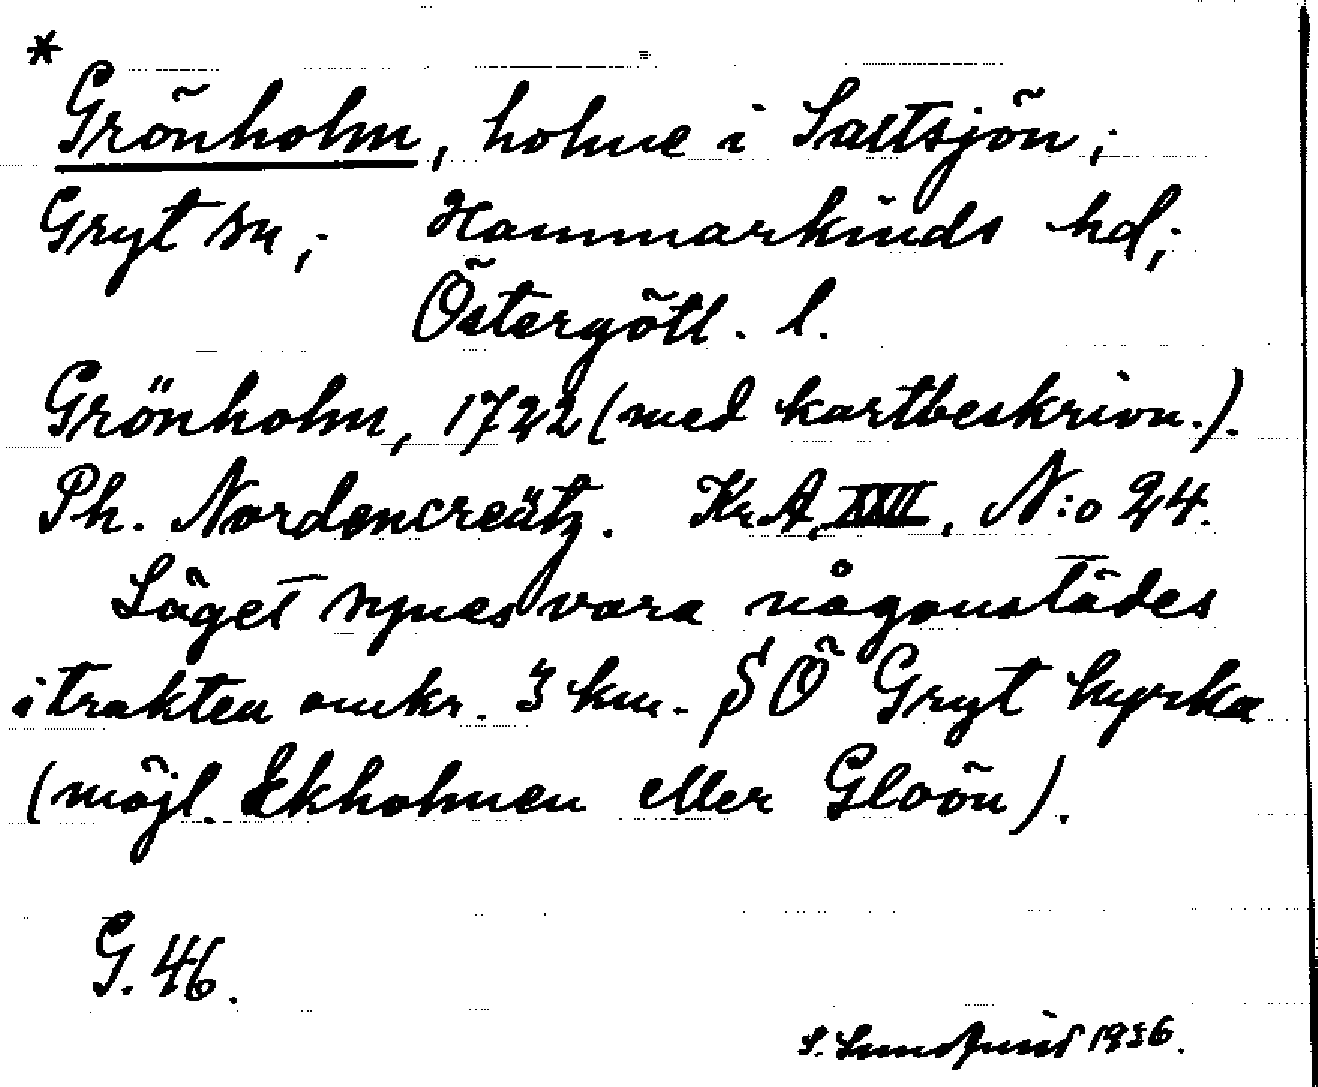 *
Grönholm, holme i Saltsjön;
Gryt sn; Hammarkinds hd;
Östergötl. l.
Grönholm, 1722 (med kartbeskrivn.).
Ph. Nordencreütz. Kr.A, XXII, N:o 24.
Läget synes vara någonstädes
i trakten omkr. 3 km. S Ö Gryt kyrka
(möjl. Ekholmen eller Gloön).
G. 46.
S. 1936.